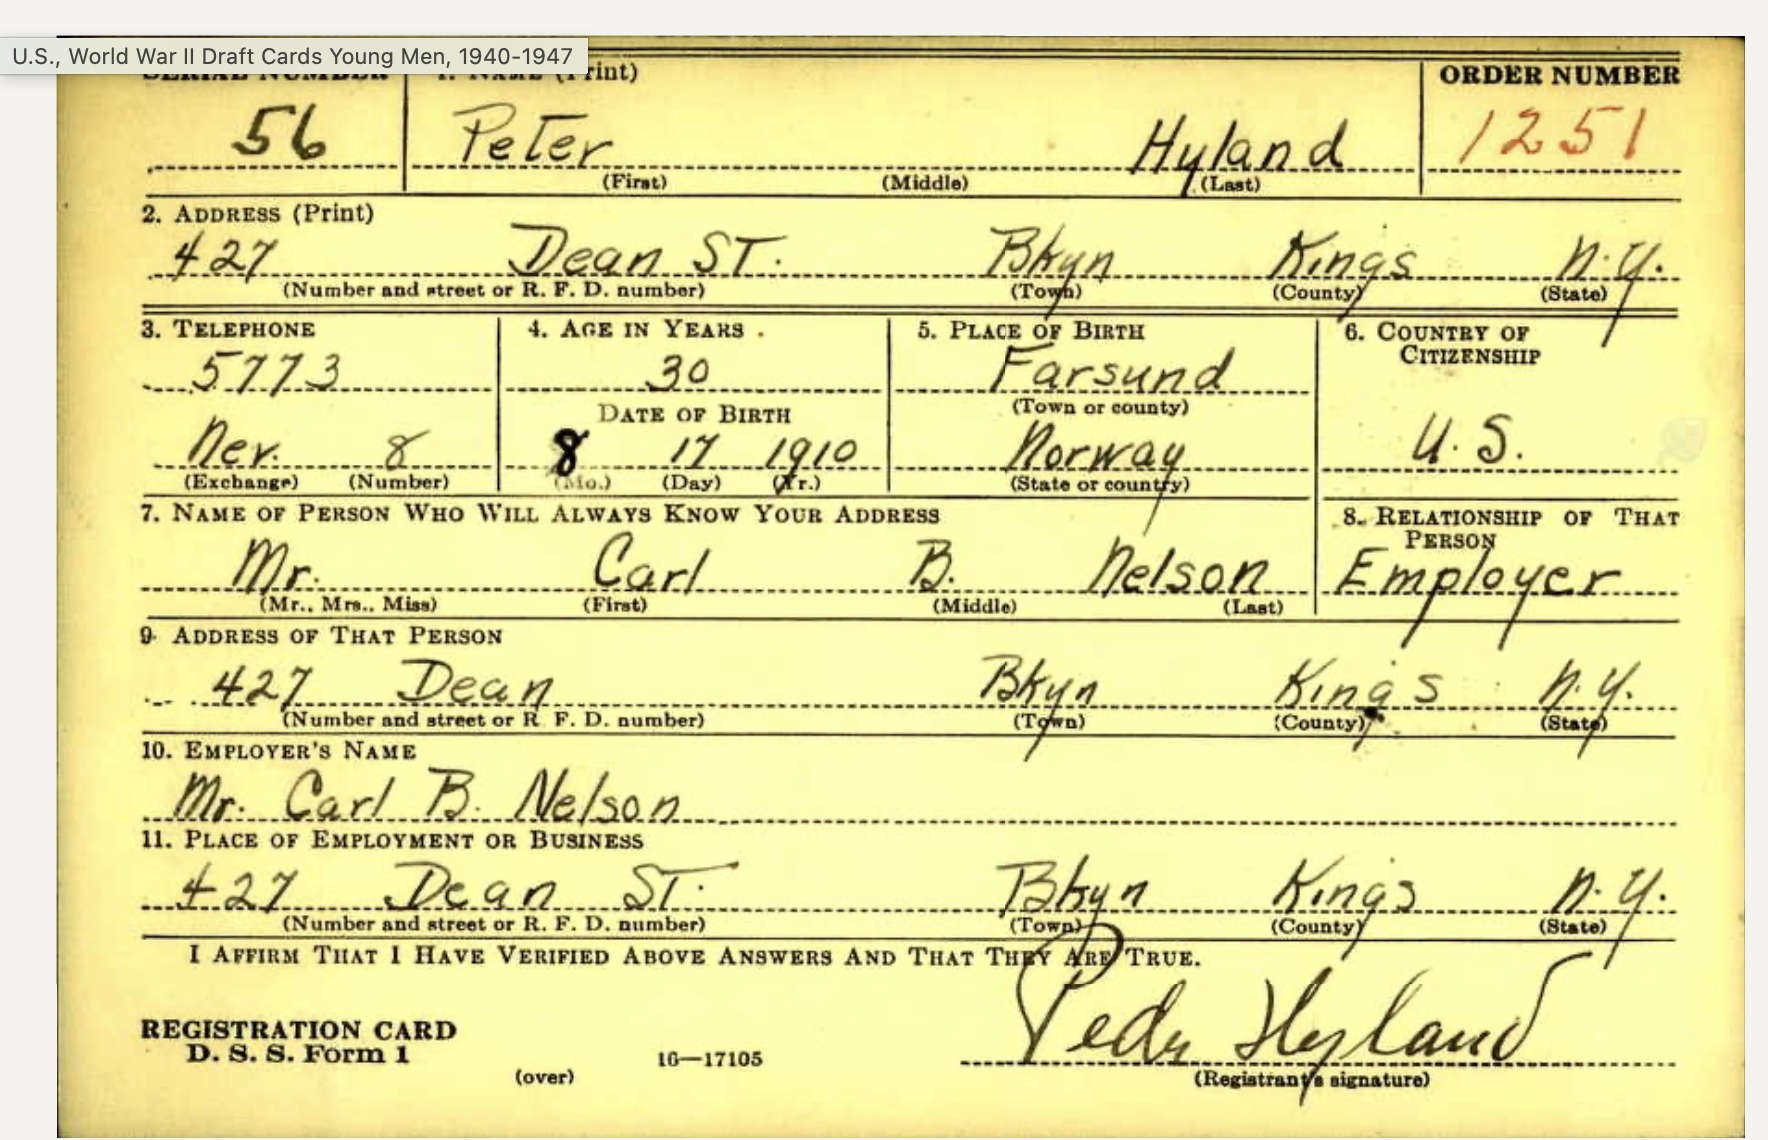 U.S., World War II Draft Cards Young Men, 1940-1947
SERIAL NUMBER 1. NAME (Print) ORDER NUMBER
56 Peter Hyland 1251
(First) (Middle) (Last)
2. ADDRESS (Print)
427 Dean ST. Bkyn Kings N.Y.
(Number and street or R. F. D. number) (Town) (County) (State)
3. TELEPHONE 4. AGE IN YEARS 5. PLACE OF BIRTH 6. COUNTRY OF
CITIZENSHIP
5773 30 Farsund
DATE OF BIRTH (Town or county)
Nev. 8 8 17 1910 Norway U.S.
(Exchange) (Number) (Mo.) (Day) (Yr.) (State or country)
7. NAME OF PERSON WHO WILL ALWAYS KNOW YOUR ADDRESS 8. RELATIONSHIP OF THAT
PERSON
Mr. Carl B. Nelson Employer
(Mr., Mrs., Miss) (First) (Middle) (Last)
9. ADDRESS OF THAT PERSON
427 Dean Bkyn Kings N.Y.
(Number and street or R F. D. number) (Town) (County) (State)
10. EMPLOYER'S NAME
Mr. Carl B. Nelson
11. PLACE OF EMPLOYMENT OR BUSINESS
427 Dean ST. Bkyn Kings N.Y.
(Number and street or R. F. D. number) (Town) (County) (State)
I AFFIRM THAT I HAVE VERIFIED ABOVE ANSWERS AND THAT THEY ARE TRUE.
REGISTRATION CARD
D. S. S. Form 1 16—17105 Peder Hyland
(over) (Registrant's signature)